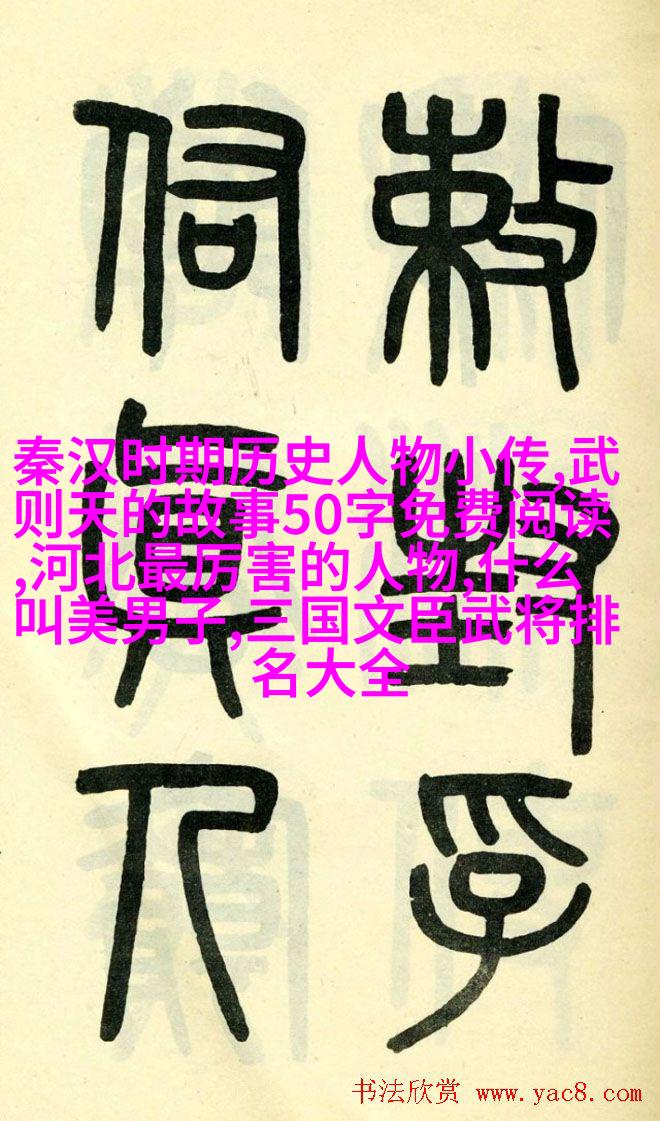 敕封孚
佑眞人
秦汉时期历史人物小传,武
则天的故事50字免费阅读
,河北最厉害的人物,什么
叫美男子,三国文臣武将排
名大全
书法欣赏 www.yac8.com